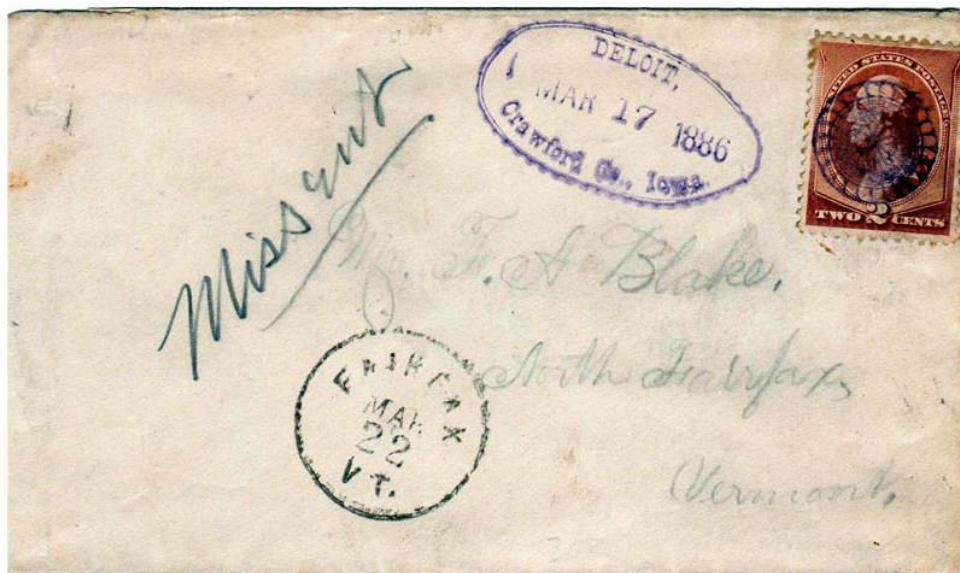 DELOIT,
MAR 17 1886
Crawford Co., Iowa.
UNITED STATES POSTAGE
TWO 2 CENTS
Missent
F. A Blake.
North Fairfax,
Vermont.
FAIRFAX
MAR
22
VT.